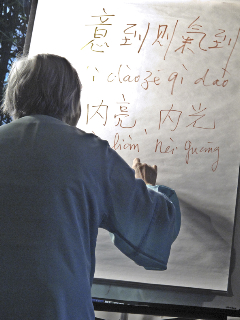 意到则氣到
ì dào zé qì dào
内亮、内光
liàn、nèi guāng